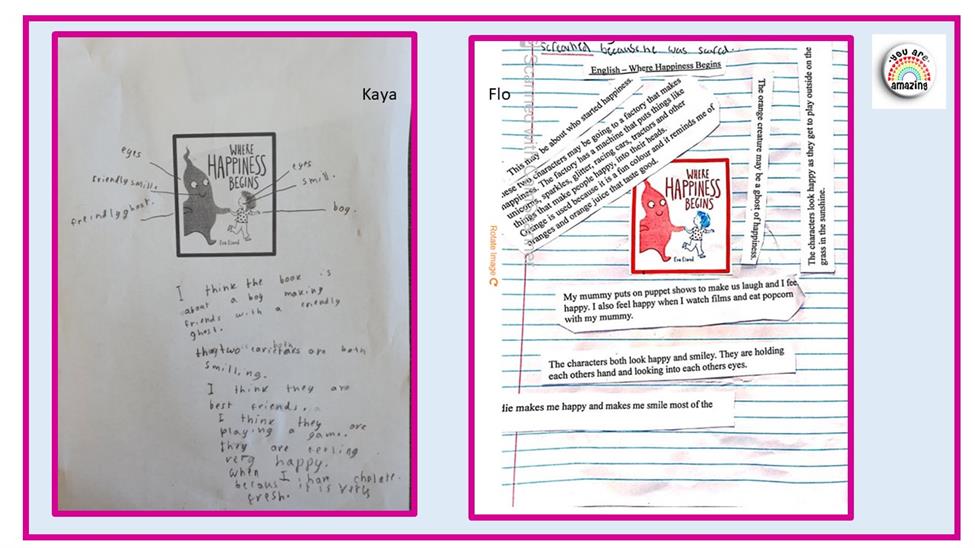 Kaya
eyes
friendly smill.
freindly ghost.
WHERE
HAPPINESS
BEGINS
Eva Eland
eyes
smill.
boy.
I think the book is
about a boy making
friends with a
ghost.
two are both
smilling.
I think they are
best friends.
I think they are
playing a game.
they are
very happy.
when I cholate
it is
fresh.
Flo
screamed because he was scared.
English – Where Happiness Begins
This may be about who started happiness.
These two characters may be going to a factory that makes
happiness. The factory has a machine that puts things like
unicorns, sparkles, glitter, racing cars, tractors and other
things that make people happy, into their heads.
Orange is used because it is a fun colour and it reminds me of
oranges and orange juice that taste good.
WHERE
HAPPINESS
BEGINS
Eva Eland
The orange creature may be a ghost of happiness.
The characters look happy as they get to play outside on the
grass in the sunshine.
Rotate image
My mummy puts on puppet shows to make us laugh and I fee
happy. I also feel happy when I watch films and eat popcorn
with my mummy.
The characters both look happy and smiley. They are holding
each others hand and looking into each others eyes.
makes me happy and makes me smile most of the
you are
amazing